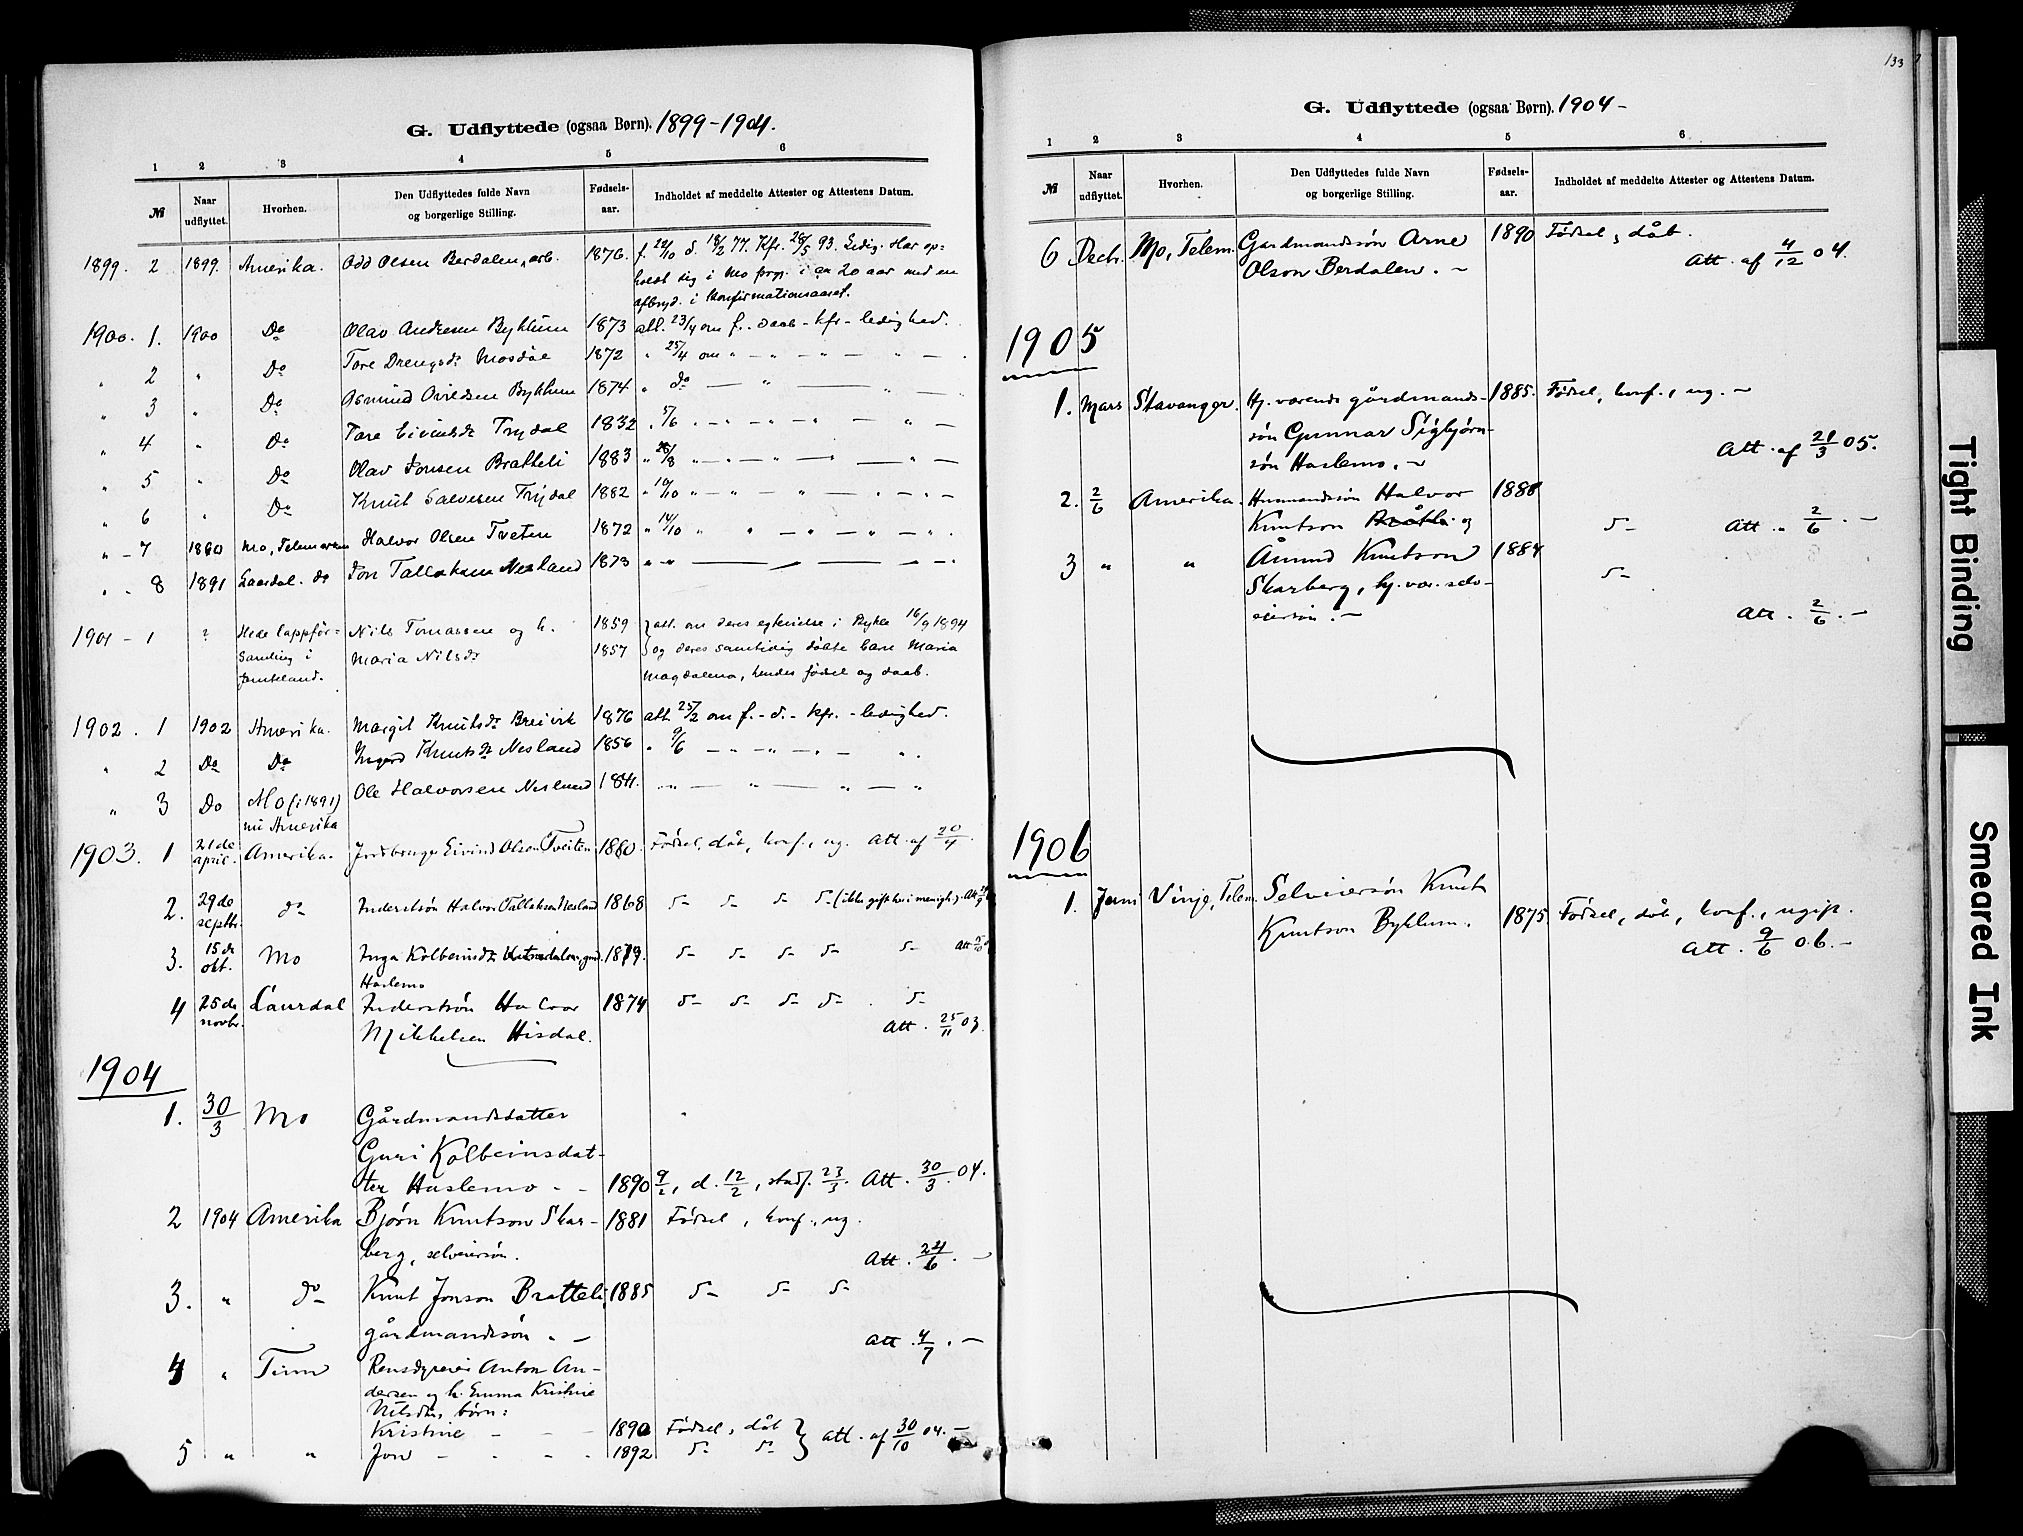 G. Udflyttede (ogsaa Børn). 1899-1904.
1 2 3 4 5 6
№ Naar udflyttet. Hvorhen. Den Udflyttedes fulde Navn og borgerlige Stilling. Fødsels-aar. Indholdet af meddelte Attester og Attestens Datum.
1899. 2 1899. Amerika. Odd Olsen Berdalen, arb. 1876. f. 22/10 d. 18/2 77. Kfr. 28/5 93. Ledig. Har op-
holdt sig i Mo prgj. i ca 20 aar med en
afbryd. i Konfirmationsaaret.
1900. 1. 1900 Do Olav Andresen Byklum 1873 att. 23/4 om f. - daab - kfr - ledighed.
" 2 " Do Tore Drengsdr Mosdøl 1872 " 25/4 om " - " - " - " -
" 3 " Do Asmund Eivildsen Byklum 1874 " do - " - " -
" 4 " Do Tare Eivindsdr Trydal 1832 " 5/6 " - " - " - " -
" 5 " Do Olav Jonsen Bratteli 1883 " 28/8 " - " - " - " -
" 6 " Do Knut Salvesen Trydal 1882 " 10/10 " - " - " - " -
" - 7 1880 Mo, Telemarken Halvor Olsen Tveten 1872 " 14/10 " " - " - " - "
" - 8 1891 Laardal. do Jon Tallaksen Nesland 1873 " - " - " - " -
1901 - 1 ? Hede lappför= Nils Tomassen og h. 1859 } att. om deres egtevielse i Bykle 16/9 1894
samling i Maria Nilsdr 1857 } og deres samtidig døbte barn Maria
Jemtland. Magdalena, hendes fødsel og daab.
1902. 1 1902 Amerika. Margit Knutsdr Breivik 1876 att 25/2 om f. - d. - kfr. - ledighed.
" 2 Do Do Ingerd Knutsdr Nesland 1856 " 9/6 - " - " - " - "
" 3 Do Mo (i 1891) Ole Halvorsen Nesland 1841. " - " - " - " - "
nu Amerika
1903. 1 21de april. Amerika. Jordbruger Eivind Olsen Tveiten 1880. Fødsel, dåb, konf., ug. Att. af 20/4
2. 29de septbr. do Inderstsøn Halvor Tallaksen Nesland 1868 5- 5- 5- 5- (ikke gift her i menigh.) Att
3. 15de okt. Mo Inga Kolbeinsdr 1879. 5- 5- 5- 5- 5- Att
Haslemo
4 25de novbr. Laurdal Inderstsøn Halvor 1874 5- 5- 5- 5- . 5-
Mikkelsen Hisdal. Att. 25/11 03.
1904
1. 30/3 Mo Gårdmandsdatter
Guri Kolbeinsdat-
ter Haslemo - - 1890 9/1, d. 12/2, stadf. 23/3. Att. 30/3 04.
2 1904 Amerika Bjørn Knutson Skar- 1881 Fødsel, konf., ug.
berg, selveiersøn. Att. 24/6. -
3. " do Knut Jonson Bratteli, 1885 5- 5- 5-
gårdmandssøn. - Att. 4/7. -
4 " Tinn Rensdyreier Anton An-
dersen og h. Emma Kristine
Nilsdr, børn:
Kristine - - - 1890 Fødsel, dåb } Att. af 30/10 04. -
5 " " Jon - - - - 1892 5- 5- }
133
G. Udflyttede (ogsaa Børn). 1904 -
1 2 3 4 5 6
№ Naar udflyttet. Hvorhen. Den Udflyttedes fulde Navn og borgerlige Stilling. Fødsels-aar. Indholdet af meddelte Attester og Attestens Datum.
6 Decbr. Mo, Telem. Gardmandssøn Arne 1890 Fødsel, dåb.
Olson Berdalen. - Att. af 4/12 04.
1905
1. Mars Stavanger. Hj. værende gårdmands- 1885. Fødsel, konf., ug. -
søn Gunnar Sigbjørn-
søn Haslemo. - Att. af 21/3 05.
2. 2/6 Amerika. Husmandssøn Halvor 1888
Knutson Bråtte og 5- Att. " 2/6. -
3 " " Åmund Knutson 1884
Skarberg, hj. vær. selv- 5-
eiersøn. - Att. 2/6. -
1906
1. Juni Vinje, Telem. Selveiersøn Knut
Knutson Byklum. 1875. Fødsel, dåb, konf., ugift.
Att. 9/6 06. -
Tight Binding
Smeared Ink